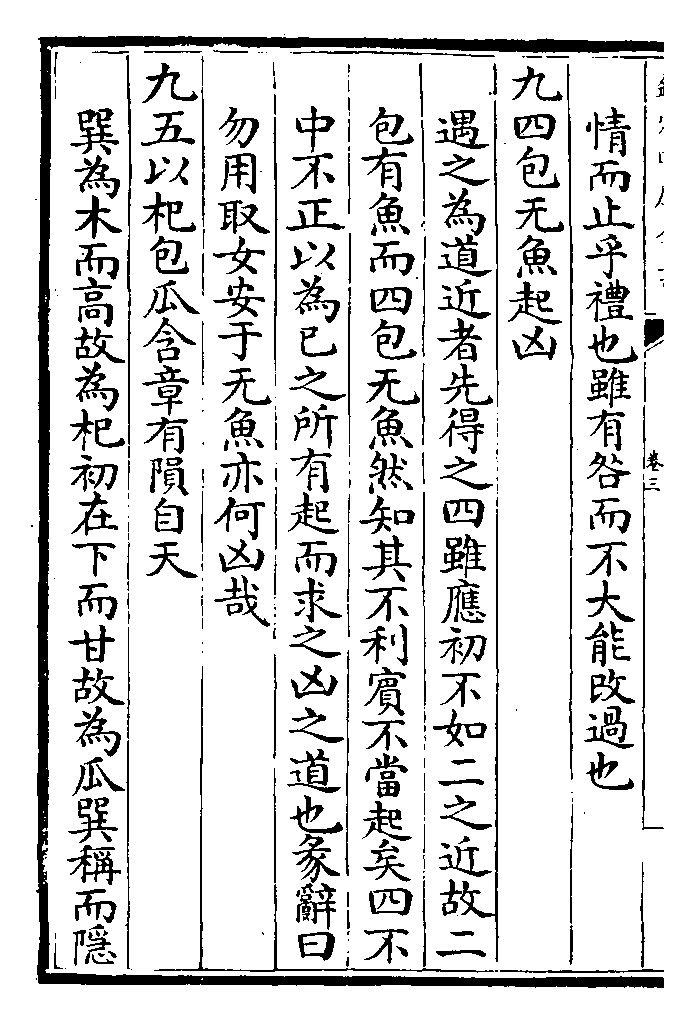 情而止乎禮也雖有咎而不大能改過也
九四包无魚起凶
遇之為道近者先得之四雖應初不如二之近故二
包有魚而四包无魚然知其不利賓不當起矣四不
中不正以為已之所有起而求之凶之道也彖辭曰
勿用取女安于无魚亦何凶哉
九五以杞包瓜含章有隕自天
巽為木而高故為杞初在下而甘故為瓜巽稱而隱
卷三